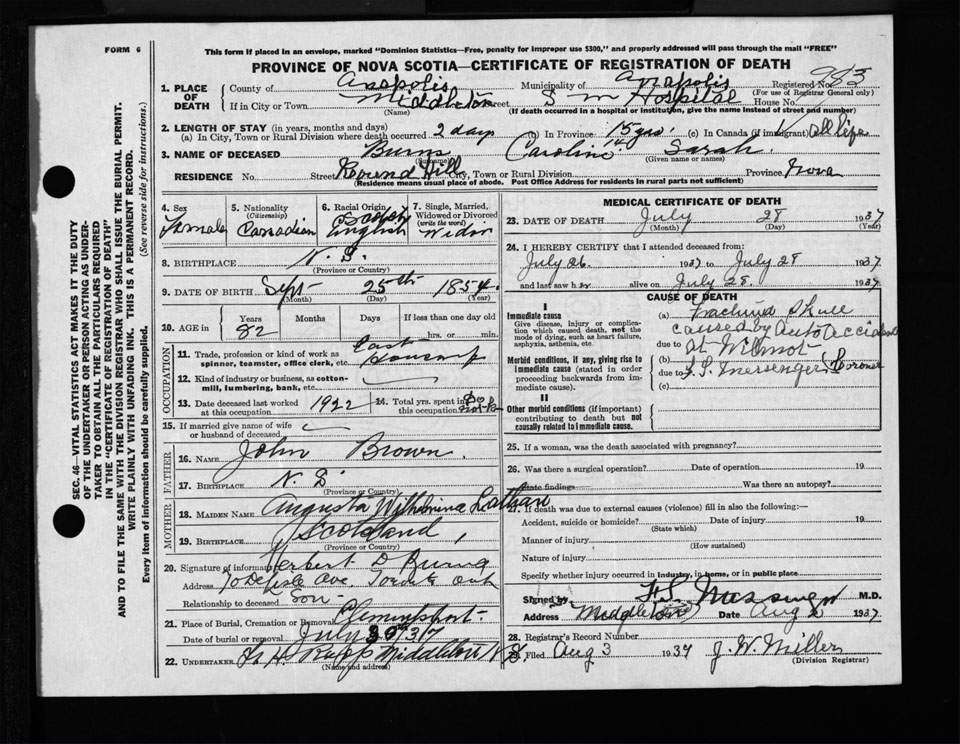 FORM 6
This form if placed in an envelope, marked "Dominion Statistics—Free, penalty for improper use $300," and properly addressed will pass through the mail "FREE"
PROVINCE OF NOVA SCOTIA—CERTIFICATE OF REGISTRATION OF DEATH
SEC. 46—VITAL STATISTICS ACT MAKES IT THE DUTY
OF THE UNDERTAKER OR PERSON ACTING AS UNDER-
TAKER TO OBTAIN ALL THE PARTICULARS REQUIRED
IN THE "CERTIFICATE OF REGISTRATION OF DEATH"
AND TO FILE THE SAME WITH THE DIVISION REGISTRAR WHO SHALL ISSUE THE BURIAL PERMIT.
WRITE PLAINLY WITH UNFADING INK. THIS IS A PERMANENT RECORD.
Every item of information should be carefully supplied. (See reverse side for instructions.)
1. PLACE OF DEATH County of Annapolis Municipality of Annapolis Registered No. 983
(For use of Registrar General only)
If in City or Town Middleton Street S M Hospital House No.
(Name) (If death occurred in a hospital or institution, give the name instead of street and number)
2. LENGTH OF STAY (in years, months and days)
(a) In City, Town or Rural Division where death occurred 2 days (b) In Province 15 yrs. (c) In Canada (if immigrant) All Life
3. NAME OF DECEASED Burns Caroline Sarah
(Surname) (Given name or names)
RESIDENCE No. Street Round Hill City, Town or Rural Division Province Nova
(Residence means usual place of abode. Post Office Address for residents in rural parts not sufficient)
4. Sex Female
5. Nationality (Citizenship) Canadian
6. Racial Origin Scotch English
7. Single, Married, Widowed or Divorced (write the word) Widow
8. BIRTHPLACE N. S.
(Province or Country)
9. DATE OF BIRTH Sept 25th 1854
(Month) (Day) (Year)
10. AGE in Years 82 Months Days If less than one day
hrs. or min.
OCCUPATION
11. Trade, profession or kind of work as spinner, teamster, office clerk, etc.
12. Kind of industry or business, as cotton-mill, lumbering, bank, etc.
13. Date deceased last worked at this occupation 1922
14. Total yrs. spent in this occupation
15. If married give name of wife or husband of deceased
FATHER
16. NAME John Brown
17. BIRTHPLACE N. S
(Province or Country)
MOTHER
18. MAIDEN NAME Augusta Wilhelmina
19. BIRTHPLACE Scotland
(Province or Country)
20. Signature of informant Herbert D
Address Ave.
Relationship to deceased Son
21. Place of Burial, Cremation or Removal Clementsport
Date of burial or removal July 30 1937
22. UNDERTAKER Middleton N S
(Name and address)
MEDICAL CERTIFICATE OF DEATH
23. DATE OF DEATH July 28 1937
(Month) (Day) (Year)
24. I HEREBY CERTIFY that I attended deceased from:
July 26 1937 to July 28 1937
and last saw h er alive on July 28 1937
CAUSE OF DEATH
I
Immediate cause
Give disease, injury or complication which caused death, not the mode of dying, such as heart failure, asphyxia, asthenia, etc.
Morbid conditions, if any, giving rise to immediate cause (stated in order proceeding backwards from immediate cause).
II
Other morbid conditions (if important) contributing to death but not causally related to immediate cause.
(a) Fractured Skull
caused by Auto Accident
due to At Wilmot
(b)
due to Coroner
(c)
25. If a woman, was the death associated with pregnancy?
26. Was there a surgical operation? Date of operation 19
State findings Was there an autopsy?
27. If death was due to external causes (violence) fill in also the following:—
Accident, suicide or homicide? Date of injury 19
(State which)
Manner of injury
(How sustained)
Nature of injury
Specify whether injury occurred in industry, in home, or in public place
Signed by M.D.
Address Middleton Date Aug 2 1937
28. Registrar's Record Number
Filed Aug 3 1937 J. W. Miller
(Division Registrar)